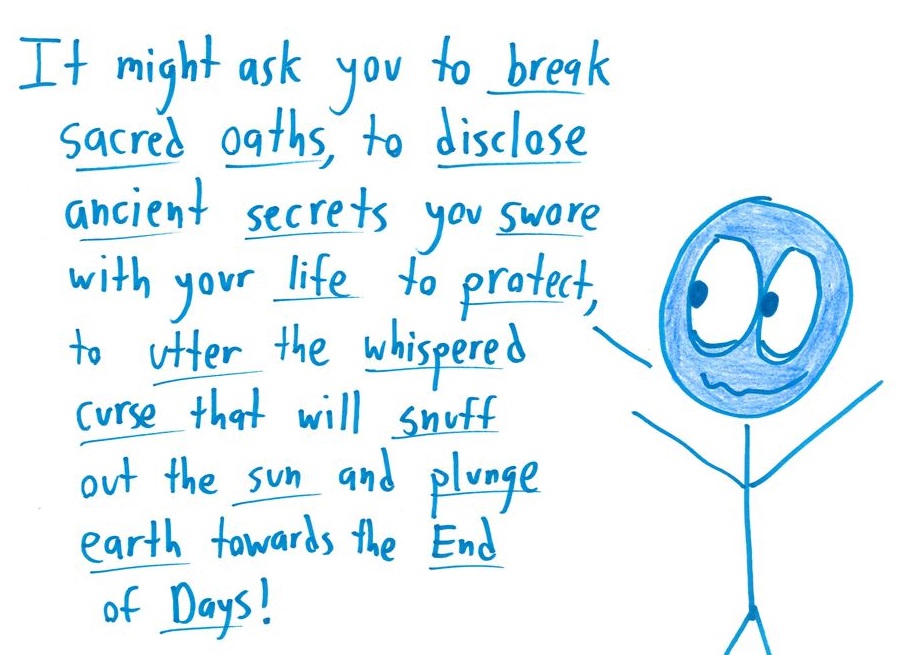 It might ask you to break
sacred oaths, to disclose
ancient secrets you swore
with your life to protect,
to utter the whispered
curse that will snuff
out the sun and plunge
earth towards the End
of Days!